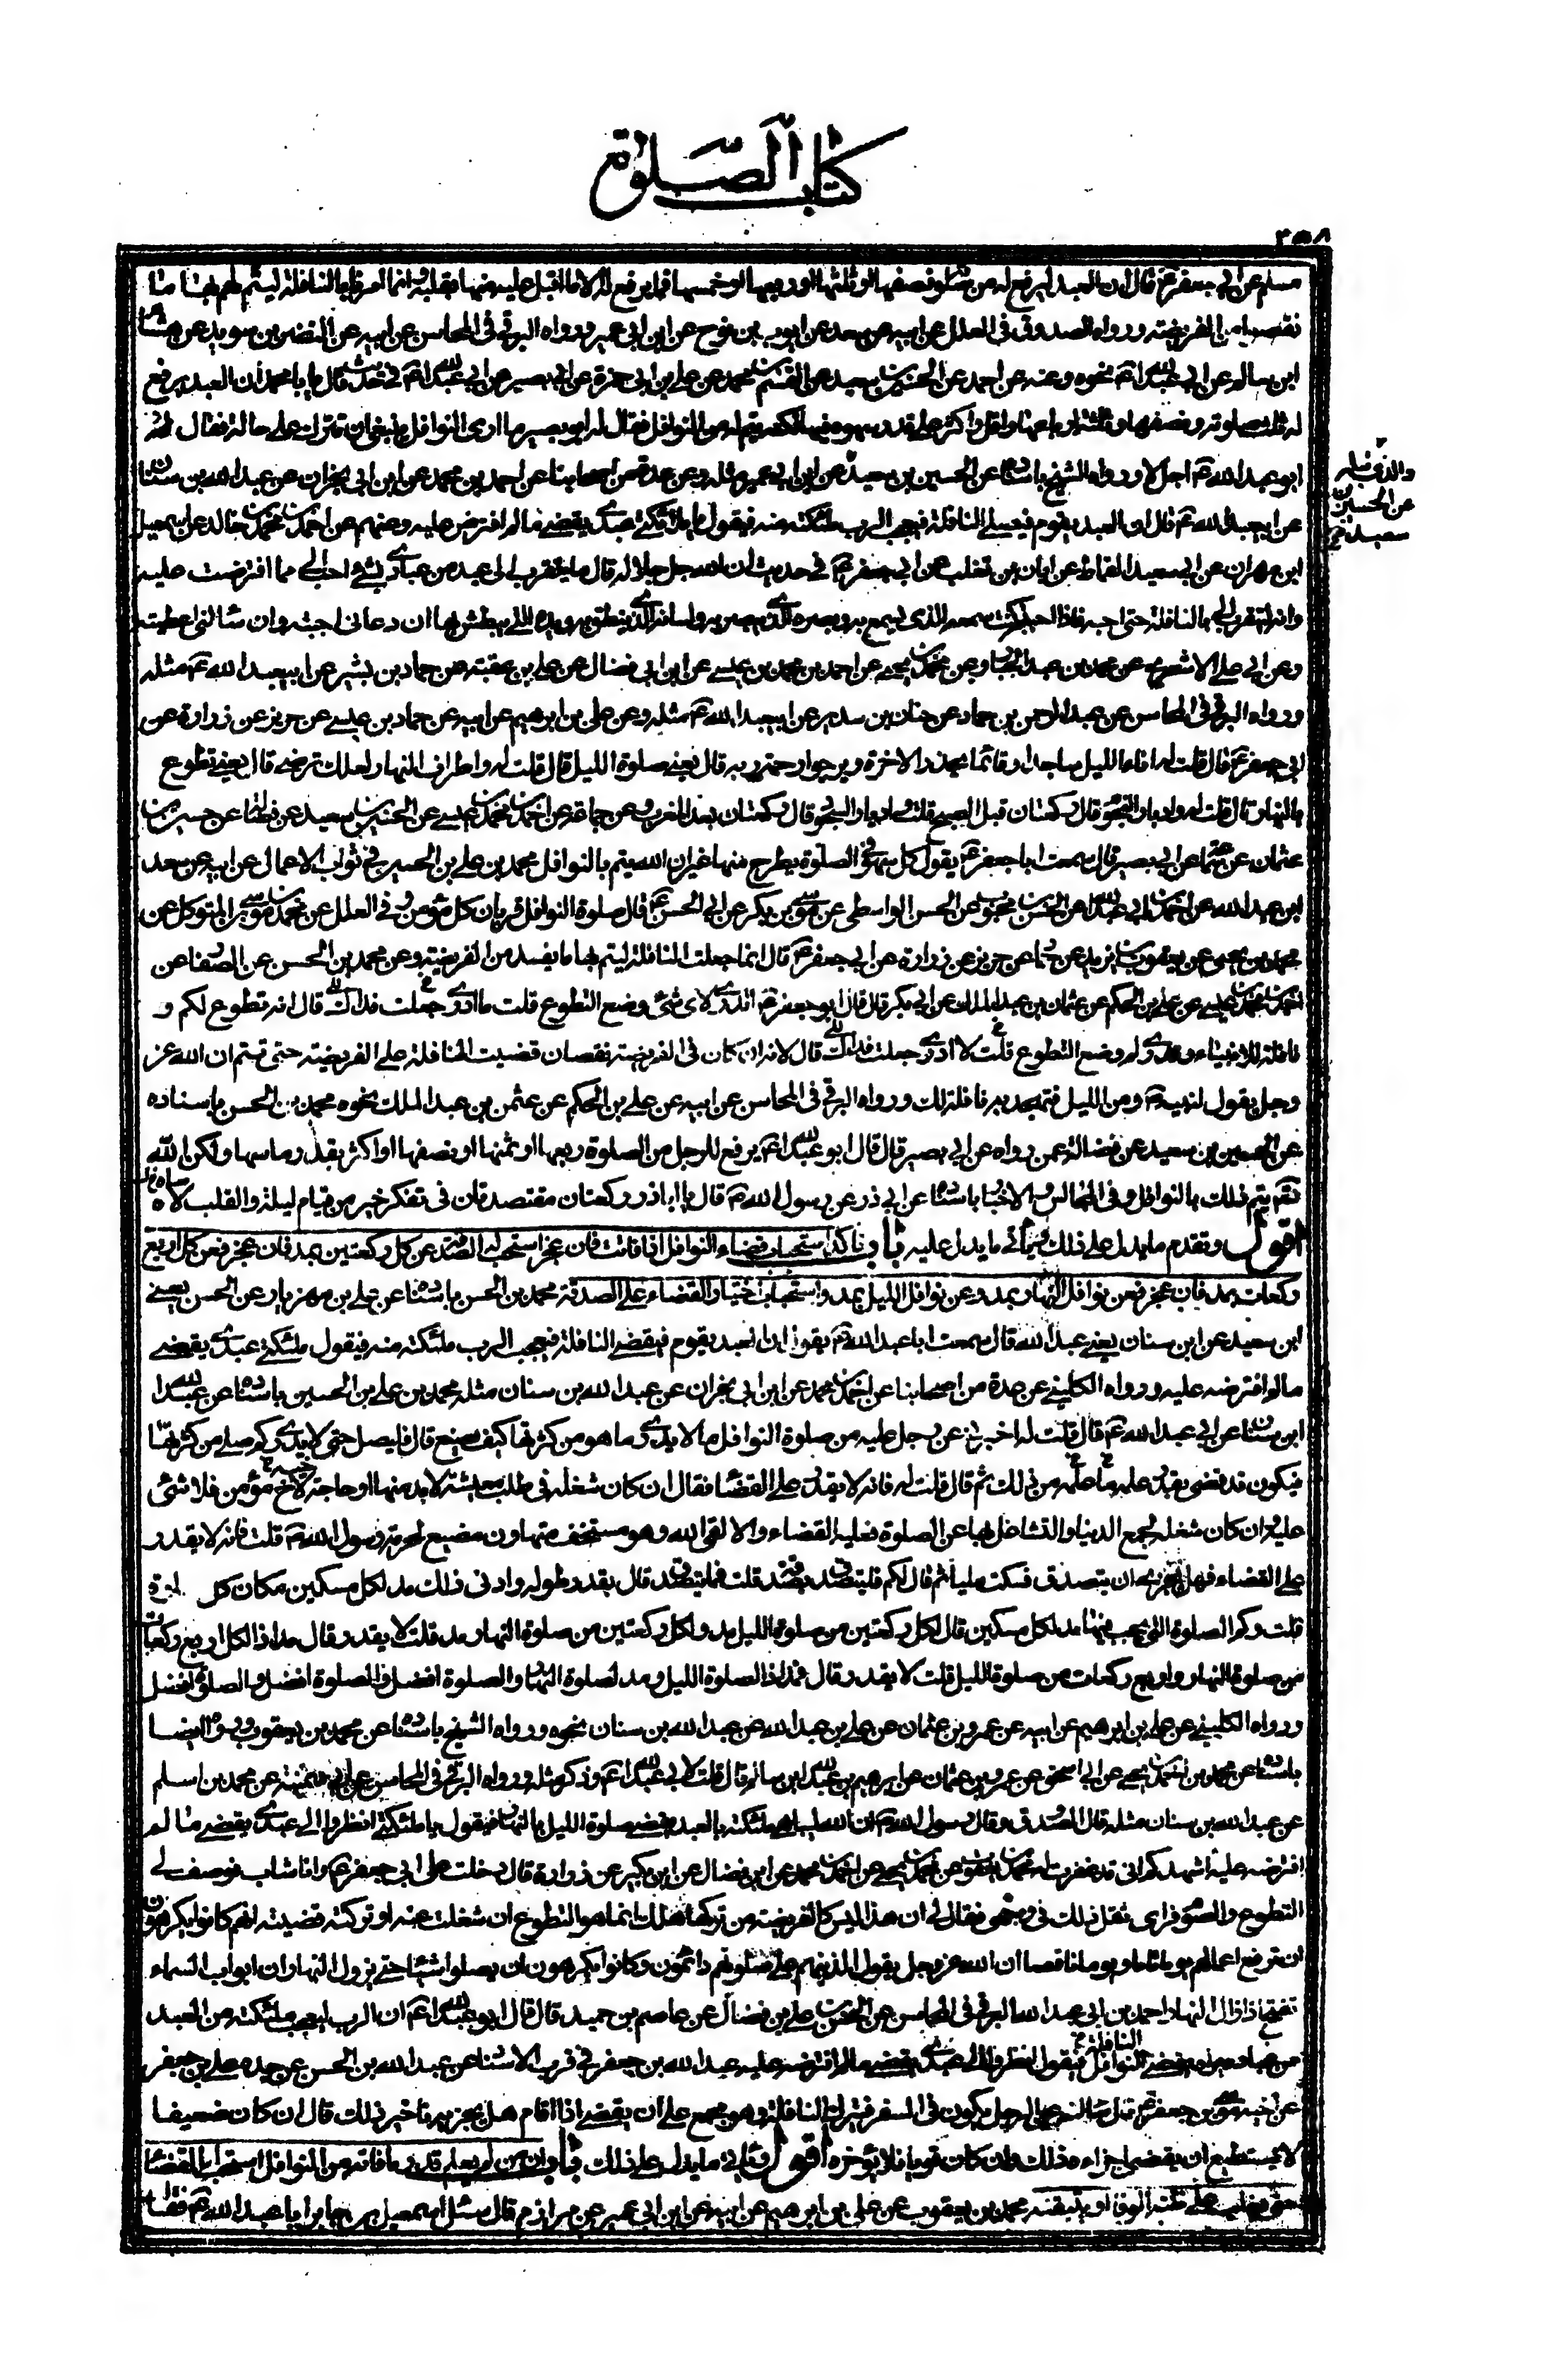 كتاب الصلوة
٣٥٨
مسلم عن ابي جعفر ع قال ان العبد ليرفع له من صلوته نصفها او ثلثها او ربعها او خمسها فما يرفع له الا ما اقبل عليه منها بقلبه وانما امرنا بالنافلة ليتم لهم بها ما
نقصوا من الفريضة ورواه الصدوق في العلل عن ابيه عن سعد عن ايوب بن نوح عن ابن ابي عمير ورواه البرقي في المحاسن عن ابيه عن النضر بن سويد عن هشام
ابن سالم عن ابي عبد الله ع نحوه وعنه عن احمد عن الحسين بن سعيد عن القسم بن محمد عن علي بن ابي حمزة عن ابي بصير عن ابي عبد الله ع في حديث قال يا با محمد ان العبد يرفع
له ثلث صلوته ونصفها و واقل واكثر على قدر سهوه فيها لكنه يتم له من النوافل فقال له ابو بصير ما ارى النوافل ينبغي ان تترك على حالة فقال
ابو عبد الله ع اجل لا ورواه الشيخ باسناده عن الحسين بن سعيد عن ابن ابي عمير مثله وعن عدة من اصحابنا عن احمد بن محمد عن ابن ابي نجران عن عبد الله بن سنان
عن ابي عبد الله ع قال ان العبد يقوم فيصلي النافلة فيعجب الرب ملئكته منه فيقول يا ملئكتي عبدي يقضي ما لم افترض عليه وعنهم عن احمد بن محمد بن خالد عن اسمعيل
ابن مهران عن ابي سعيد القماط عن ابان بن تغلب عن ابي جعفر ع في حديث ان الله جل جلاله قال ما يتقرب الي عبد من عبادي بشيء احب الي مما افترضت عليه
وانه ليتقرب الي بالنافلة حتى احبه فاذا احببته كنت سمعه الذي يسمع به وبصره الذي يبصر به ولسانه الذي ينطق به ويده التي يبطش بها ان دعاني اجبته وان سألني اعطيته
وعن ابي علي الاشعري عن محمد بن عبد الجبار وعن محمد بن يحيى عن احمد بن محمد بن عيسى عن ابن فضال عن علي بن عقبة عن حماد بن بشير عن ابي عبد الله ع مثله
ورواه البرقي في المحاسن عن عبد الرحمن بن حماد عن حنان بن سدير عن ابي عبد الله ع مثله وعن علي بن ابرهيم عن ابيه عن حماد بن عيسى عن حريز عن زرارة عن
ابي جعفر ع قال قلت له اناء الليل ساجدا وقائما يحذر الاخرة ويرجوا رحمة ربه قال يعني صلوة الليل قال قلت له واطراف النهار لعلك ترضى قال يعني تطوع
بالنهار قال قلت له وادبار النجوم قال ركعتان قبل الصبح قلت وادبار السجود قال ركعتان بعد المغرب وعن جماعة عن احمد بن محمد بن عيسى عن الحسين بن سعيد عن فضالة عن حسين بن
عثمان عن سماعة عن ابي بصير قال سمعت ابا جعفر ع يقول كل سهو في الصلوة يطرح منها غير ان الله يتم بالنوافل محمد بن علي بن الحسين في ثواب الاعمال عن ابيه عن سعد
ابن عبد الله عن احمد بن ابي عبد الله عن الحسن بن محبوب عن الحسن الواسطي عن موسى بن بكر عن ابي الحسن ع قال صلوة النوافل قربان كل مؤمن وفي العلل عن محمد بن موسى بن المتوكل عن
محمد بن يحيى عن يعقوب بن يزيد عن حماد عن حريز عن زرارة عن ابي جعفر ع قال انما جعلت النافلة ليتم بها ما يفسد من الفريضة وعن محمد بن الحسن عن الصفار عن
احمد بن محمد بن عيسى عن علي بن الحكم عن عثمان بن عبد الملك عن ابي بكر قال قال ابو جعفر ع اتدري لاي شئ وضع التطوع قلت ما ادري جعلت فداك قال انه تطوع لكم و
نافلة للانبياء وتدري ولم وضع التطوع قلت لا ادري جعلت فداك قال لانه ان كان في الفريضة نقصان قضيت النافلة على الفريضة حتى تتم ان الله عز
وجل يقول لنبيه ص ومن الليل فتهجد به نافلة لك ورواه البرقي في المحاسن عن ابيه عن علي بن الحكم عن عثمن بن عبد الملك نحوه محمد بن الحسن باسناده
عن الحسين بن سعيد عن فضالة عمن رواه عن ابي بصير قال قال ابو عبد الله ع يرفع للرجل من الصلوة ربعها او ثمنها او نصفها او اكثر بقدر ما سها ولكن الله
تعالى يتم ذلك بالنوافل وفي المجالس والاخبار باسناده عن ابي ذر عن رسول الله ص قال يا اباذر ركعتان مقتصدتان في تفكر خير من قيام ليلة والقلب لاه
اقول وتقدم ما يدل على ذلك ويأتي ما يدل عليه باب تاكد استحباب قضاء النوافل اذا فاتت فان عجز استحب له الصدقة عن كل ركعتين بمد فان عجز فعن كل اربع
ركعات بمد فان عجز فعن نوافل النهار بمد وعن نوافل الليل بمد واستحباب اختيار القضاء على الصدقة محمد بن الحسن باسناده عن علي بن مهزيار عن الحسن يعني
ابن سعيد عن ابن سنان يعني عبد الله قال سمعت ابا عبد الله ع يقول ان العبد يقوم فيقضي النافلة فيعجب الرب ملئكته منه فيقول ملئكتي عبدي يقضي
ما لم افترضه عليه ورواه الكليني عن عدة من اصحابنا عن احمد بن محمد عن ابن ابي نجران عن عبد الله بن سنان مثله محمد بن علي بن الحسين باسناده عن عبد الله
ابن سنان عن ابي عبد الله ع قال قلت له اخبرني عن رجل عليه من صلوة النوافل ما لا يدري ما هو من كثرتها كيف يصنع قال فليصل حتى لا يدري كم صلى من كثرتها
فيكون قد قضى بقدر علمه ما علمه من ذلك ثم قال قلت له فانه لا يقدر على القضاء فقال ان كان شغله في طلب معيشة لا بد منها او حاجة لاخ مؤمن فلا شئ
عليه وان كان شغله لجمع الدنيا والتشاغل بها عن الصلوة فعليه القضاء والا لقي الله وهو مستخف متهاون مضيع لحرمة رسول الله ص قلت فانه لا يقدر
على القضاء فهل يجزي ان يتصدق فسكت مليا ثم قال لكم فليتصدق بصدقة قلت فما يتصدق قال بقدر طوله وادنى ذلك مد لكل مسكين مكان كل
قلت وكم الصلوة التي يجب فيها مد لكل مسكين قال لكل ركعتين من صلوة الليل مد ولكل ركعتين من صلوة النهار مد قلت لا يقدر قال مد اذا لكل اربع ركعات
من صلوة النهار واربع ركعات من صلوة الليل قلت لا يقدر قال فمد اذا لصلوة الليل ومد لصلوة النهار والصلوة افضل والصلوة افضل والصلوة افضل
ورواه الكليني عن علي بن ابرهيم عن ابيه عن عمرو بن عثمان عن علي بن عبد الله عن عبد الله بن سنان نحوه ورواه الشيخ باسناده عن محمد بن يعقوب ورواه ايضا
باسناده عن محمد بن احمد بن يحيى عن ابي اسحق عن عمرو بن عثمان عن ابرهيم بن عبد الله ابن سالم قال قلت لابي عبد الله ع وذكر مثله ورواه البرقي في المحاسن عن عن محمد بن اسلم
عن عبد الله بن سنان مثله قال الصدوق وقال رسول الله ص ان الله ليباهي ملئكته بالعبد يقضي صلوة الليل بالنهار فيقول يا ملئكتي انظروا الى عبدي يقضي ما لم
افترضه عليه اشهدكم اني قد غفرت له محمد بن يعقوب عن محمد بن يحيى عن احمد بن محمد عن ابن فضال عن ابن بكير عن زرارة قال دخلت على ابي جعفر ع وانا شاب فوصف لي
التطوع والصوم فراى ثقل ذلك في وجهي فقال لي ان هذا ليس كالفريضة من تركها هلك انما هو التطوع ان شغلت عنه او تركته قضيته انهم كانوا يكرهون
ان ترفع اعمالهم يوما تاما ويوما ناقصا ان الله عز وجل يقول الذين هم على صلوتهم دائمون وكانوا يكرهون ان يصلوا شيئا حتى يزول النهار ان ابواب السماء
تفتح اذا زال النهار احمد بن ابي عبد الله البرقي في المحاسن عن الحسن بن علي بن فضال عن عاصم بن حميد قال قال ابو عبد الله ع ان الرب ليعجب ملئكته من العبد
من عباده يراه يقضي النوافل فيقول انظروا الى عبدي يقضي ما لم افترضه عليه عبد الله بن جعفر في قرب الاسناد عن عبد الله بن الحسن عن جده علي بن جعفر
النافلة خ
عن اخيه موسى بن جعفر ع قال سألته عن الرجل يكون في السفر فيترك النافلة وهو مجمع على ان يقضي اذا اقام هل يجزيه تاخير ذلك قال ان كان ضعيفا
لا يستطيع ان يقضي اجزاه ذلك وان كان قويا فلا يؤخره اقول ويأتي ما يدل على ذلك باب ان من لم يعلم قدر ما فاته من النوافل استحب له القضاء
حتى يغلب على ظنه الوفاء او يتيقنه محمد بن يعقوب عن علي بن ابرهيم عن ابيه عن ابن ابي عمير عن مرازم قال سئل اسمعيل بن جابر ابا عبد الله ع فقال
عن الحسين بن
سعيد خ